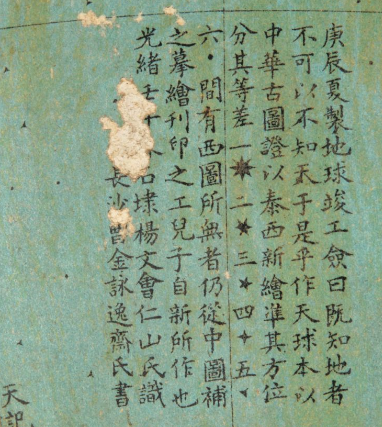 庚辰夏製地球竣工僉曰既知地者
不可以不知天于是乎作天球本以
中華古圖證以泰西新繪準其方位
分其等差一★二★三★四✦五
六・間有西圖所無者仍從中圖補
之摹繪刊印之工兒子自新所作也
光緒壬 石埭楊文會仁山氏識
長沙曾金詠逸齋氏書
天